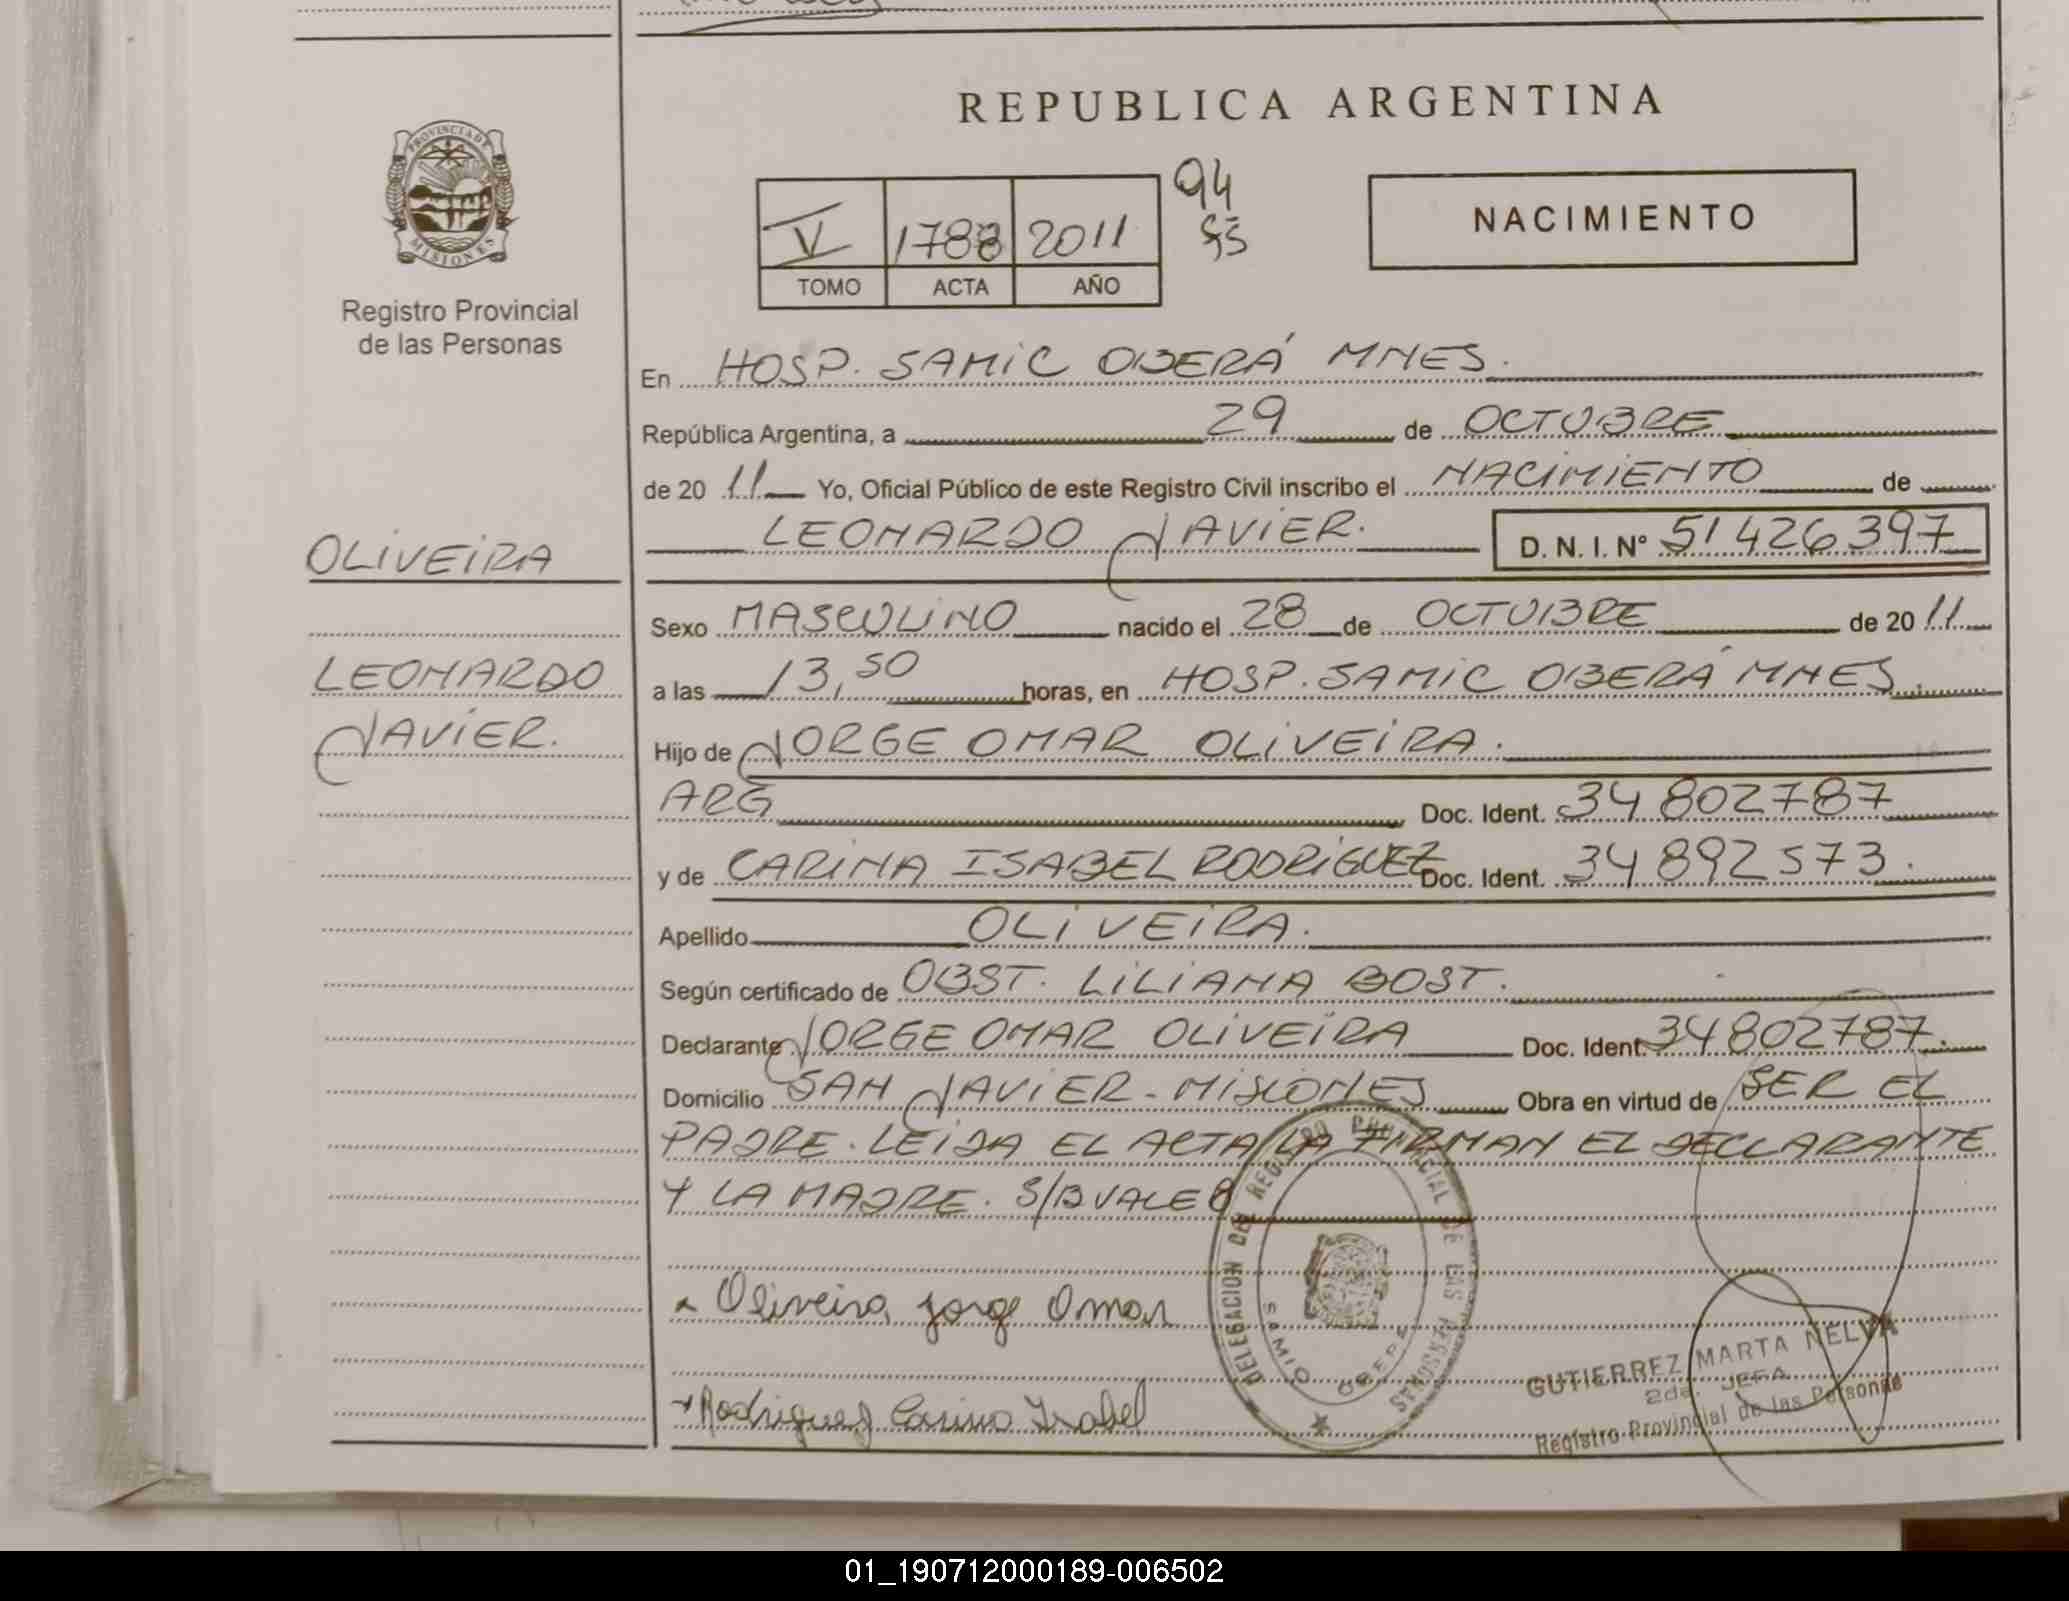 REPUBLICA ARGENTINA
PROVINCIA DE
MISIONES
Registro Provincial
de las Personas
V 1788 2011
TOMO ACTA AÑO
94
NACIMIENTO
En HOSP. SAMIC OBERÁ MNES.
República Argentina, a 29 de OCTUBRE
de 2011 Yo, Oficial Público de este Registro Civil inscribo el NACIMIENTO de
LEONARDO JAVIER. D. N. I. Nº 51426397
OLIVEIRA
LEONARDO
JAVIER.
Sexo MASCULINO nacido el 28 de OCTUBRE de 2011
a las 13,50 horas, en HOSP. SAMIC OBERÁ MNES.
Hijo de JORGE OMAR OLIVEIRA.
ARG Doc. Ident. 34802787
y de CARINA ISABEL RODRIGUEZ Doc. Ident. 34892573.
Apellido OLIVEIRA.
Según certificado de OBST. LILIANA BOST.
Declarante JORGE OMAR OLIVEIRA Doc. Ident. 34802787.
Domicilio SAN JAVIER - MISIONES Obra en virtud de SER EL
PADRE. LEIDA EL ACTA LA FIRMAN EL DECLARANTE
Y LA MADRE. S/B VALE 8
Oliveira, jorge Omar
Rodriguez Carina Isabel
DELEGACION DEL REGISTRO PROVINCIAL DE LAS PERSONAS
SAMIC OBERA
GUTIERREZ MARTA NELVA
2da. JEFA
Registro Provincial de las Personas
01_190712000189-006502